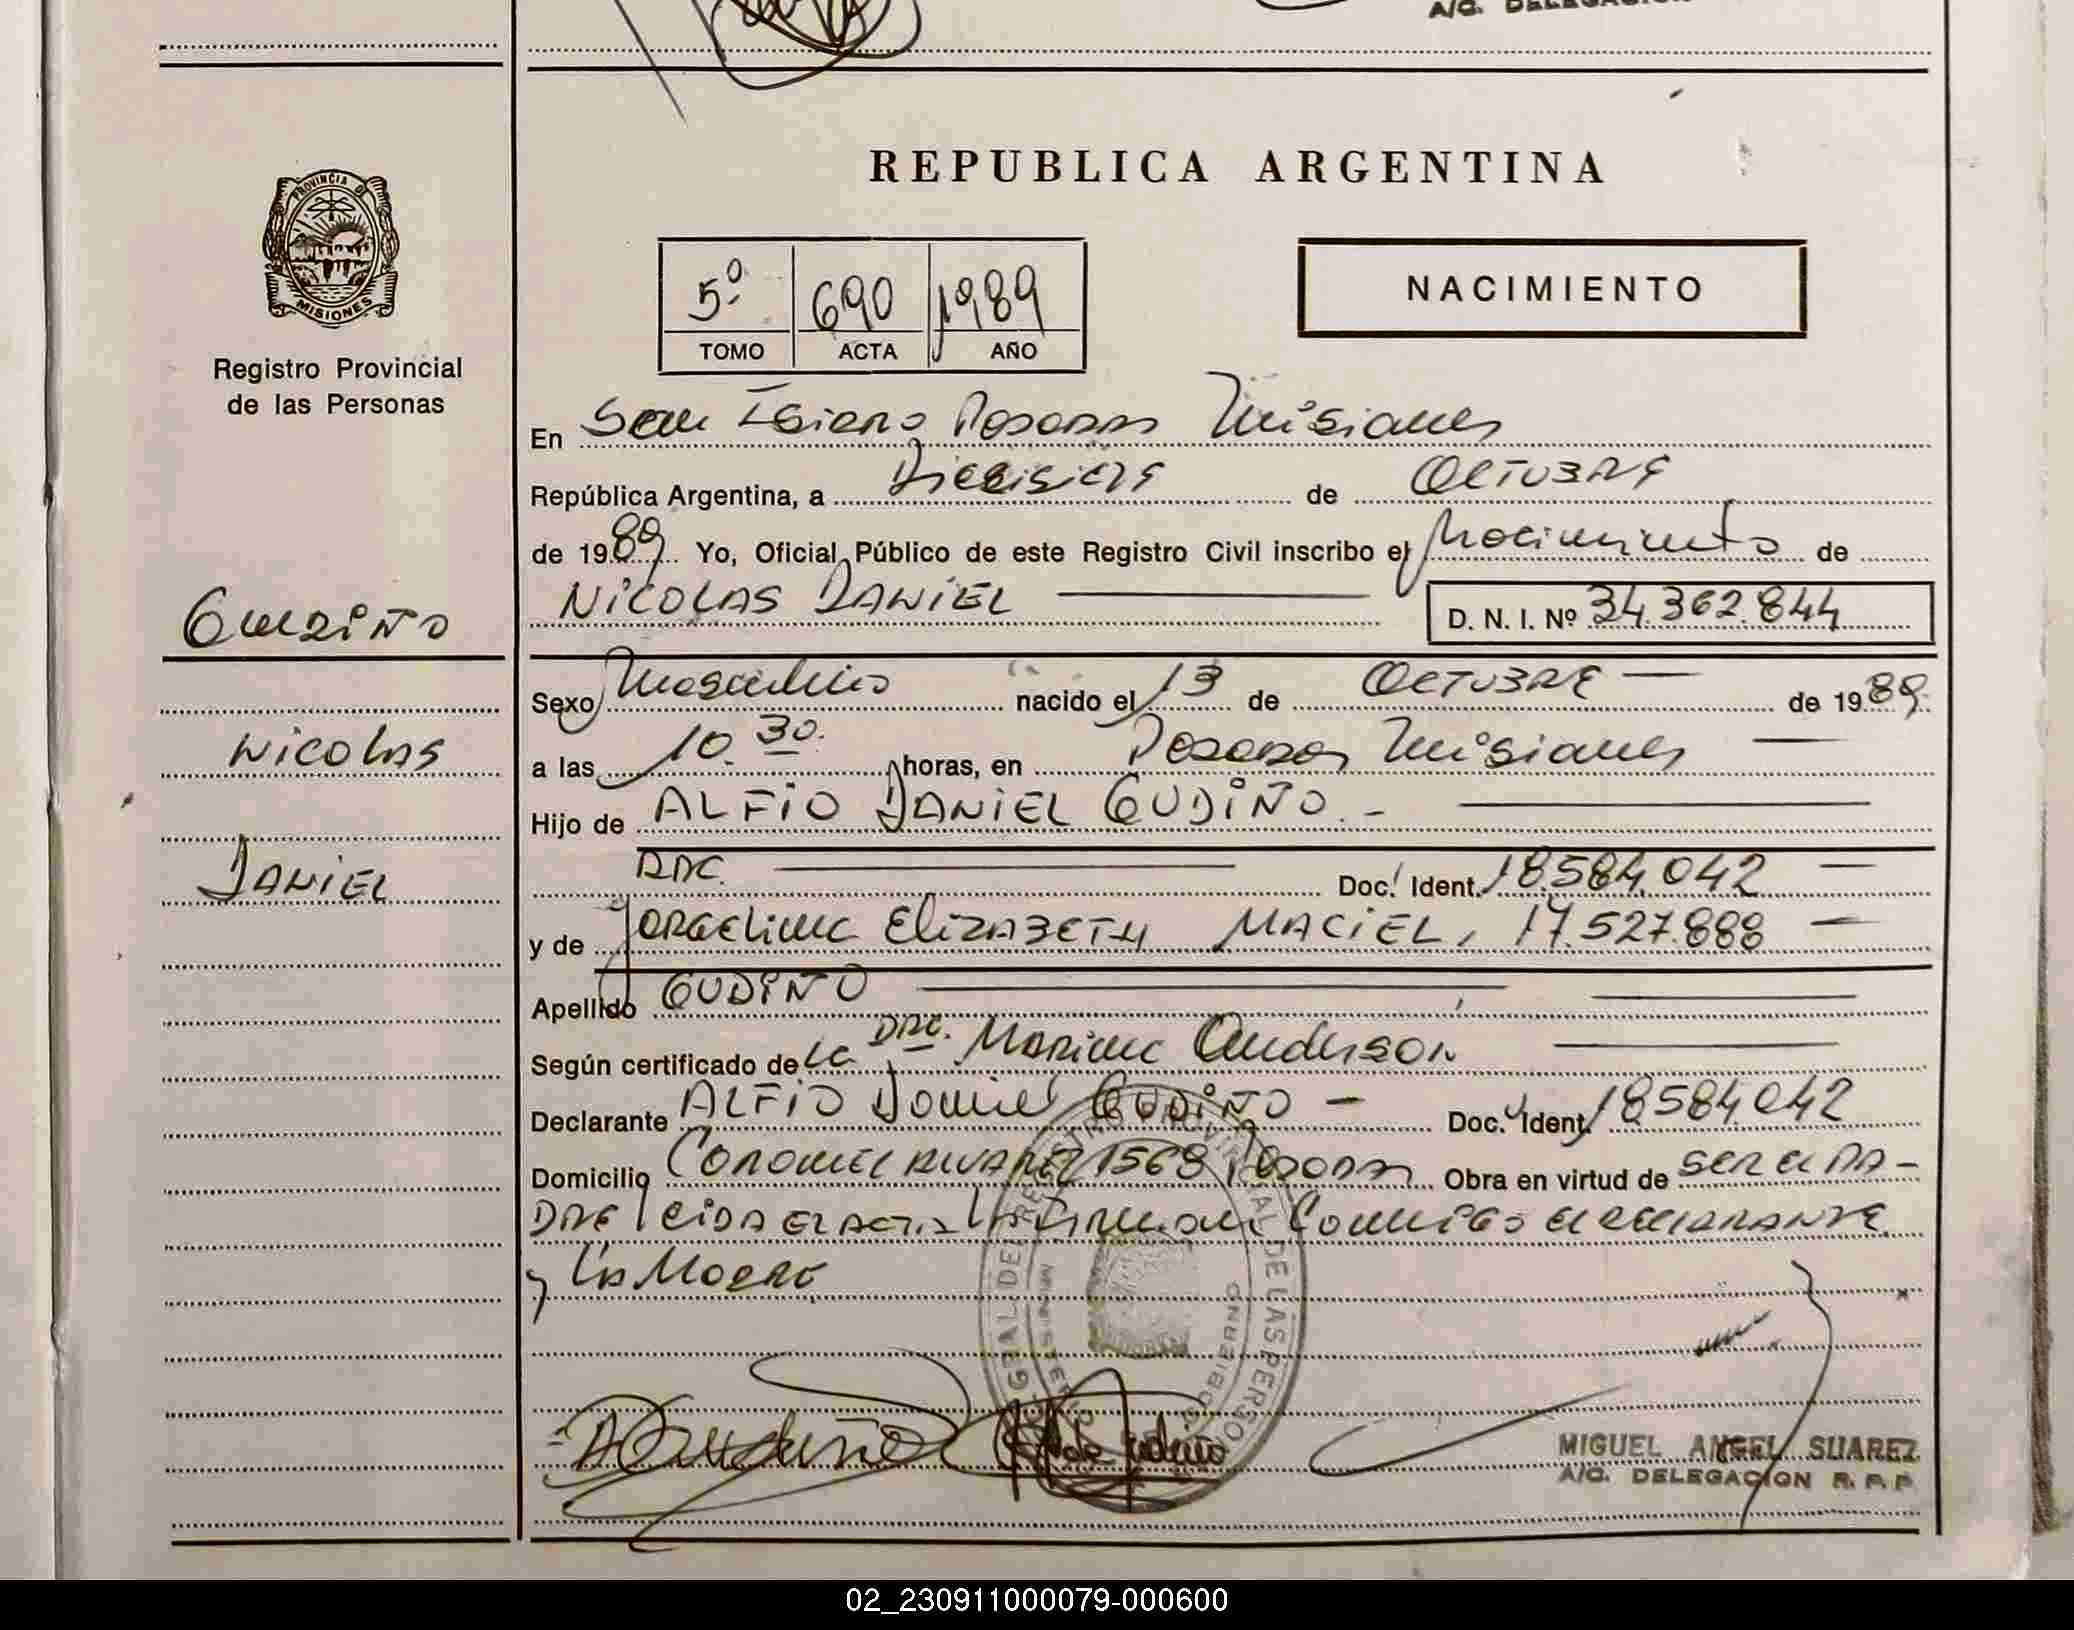 A/C. DELEGACION
REPUBLICA ARGENTINA
PROVINCIA D
MISIONES
Registro Provincial
de las Personas
5º 690 1989
TOMO ACTA AÑO
NACIMIENTO
En San Isidro Posadas Misiones
República Argentina, a Diecisiete de Octubre
de 1989 Yo, Oficial Público de este Registro Civil inscribo el Nacimiento de
NICOLAS DANIEL D. N. I. Nº 34.362.844
GUDIÑO
NICOLAS
DANIEL
Sexo Masculino nacido el 13 de OCTUBRE de 1989
a las 10.30. horas, en Posadas Misiones
Hijo de ALFIO DANIEL GUDIÑO.
Doc. Ident. 18.584.042
y de JORGELINA ELIZABETH MACIEL, 17.527.888
Apellido GUDIÑO
Según certificado de La DRA. Mariana Anderson
Declarante ALFIO Daniel GUDIÑO Doc. Ident. 18584.042
Domicilio CORONEL ALVAREZ 1568 Posadas Obra en virtud de SER EL PA-
DRE LEIDA EL ACTA LA FIRMAN Conmigo el declarante
y la Madre
REGISTRO PROVINCIAL DE LAS PERSONAS
MINISTERIO GOBIERNO
MIGUEL ANGEL SUAREZ
A/C. DELEGACION R. P. P
02_230911000079-000600